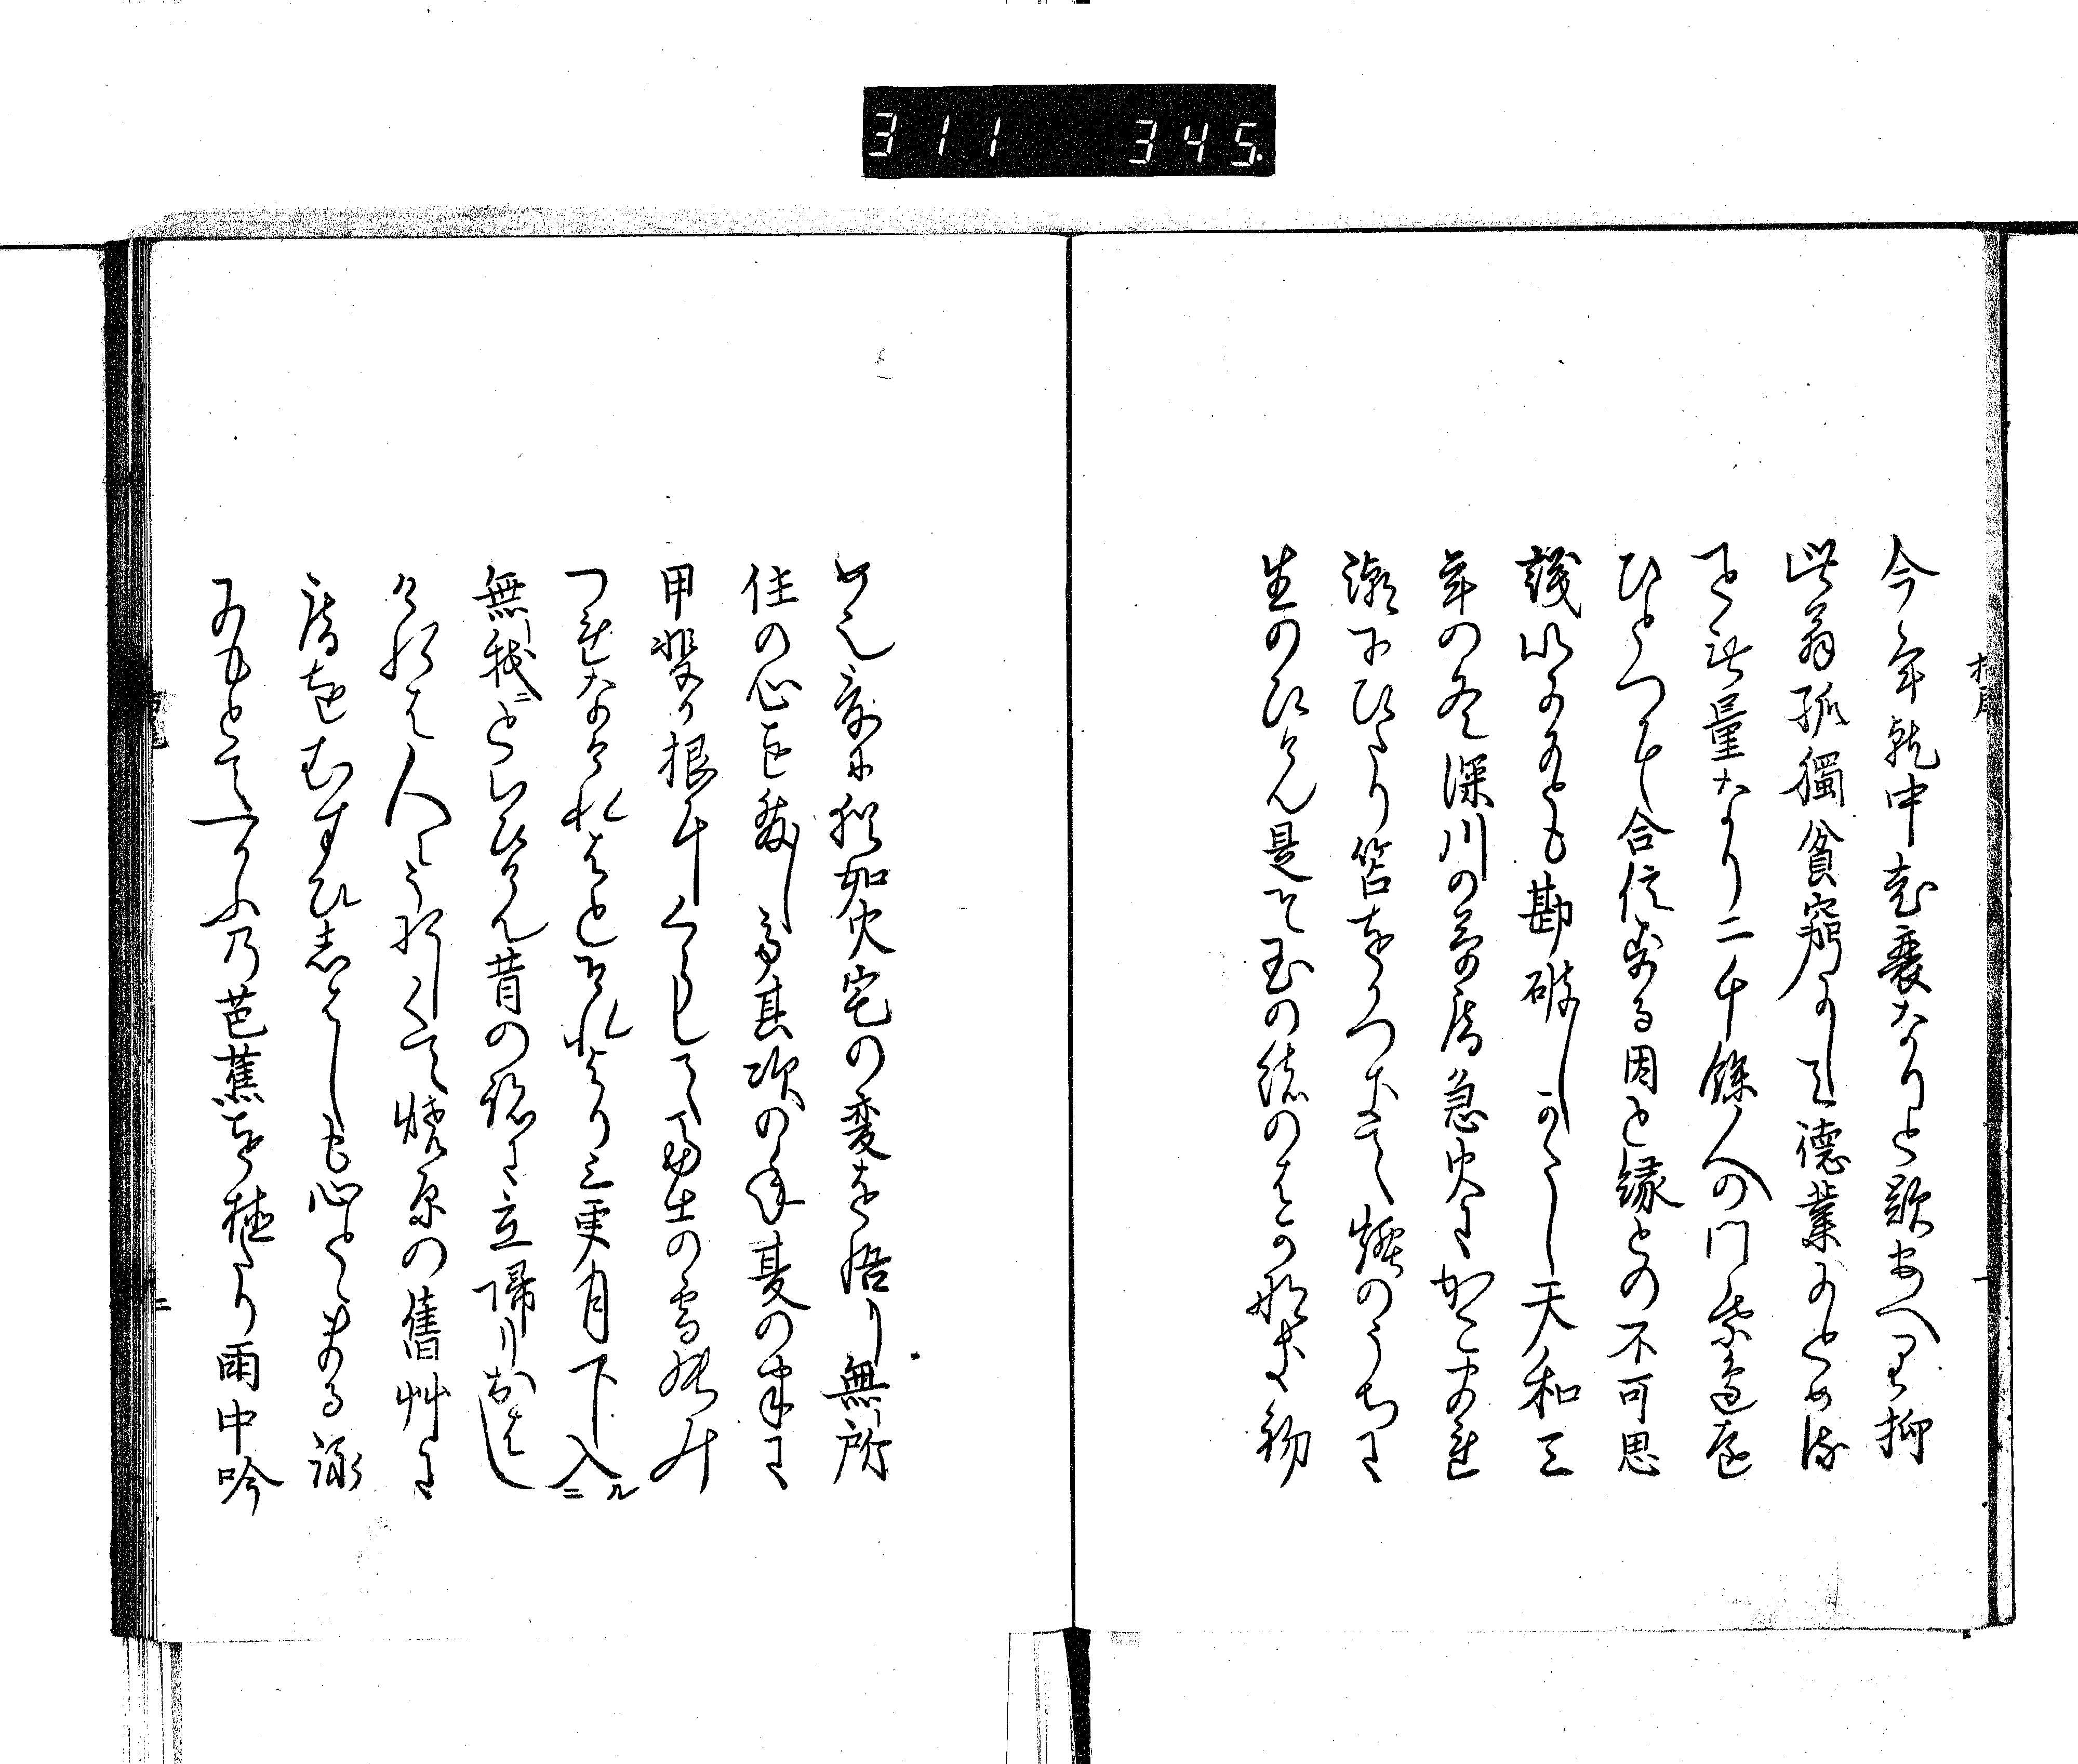 311 345
枯尾
今年就中老衰なりと歎あへり抑
此翁孤獨貧窮にして德業にとめる
こと無量なり二千餘人の門葉邊遠
ひとつに合信する因と縁との不可思
議いかにとも勘破しかたし天和三
年の冬深川の草庵急火にかこまれ
潮にひたり苫をかつきて煙のうちに
生のひけん是そ玉の緒のはかなき初
め也爰に猶如火宅の変を悟り無所
住の心を發して其次の年夏の半に
甲斐か根にくらして冨士の雪のみ
つれなけれはとそれより三更月下入ル二
無我ニといひけん昔の跡に立帰りおはし
けれは人々うれしくて焼原の舊艸に
庵をむすひしはしも心とゝまる詠
にもとて一かふ乃芭蕉を植たり雨中吟
二